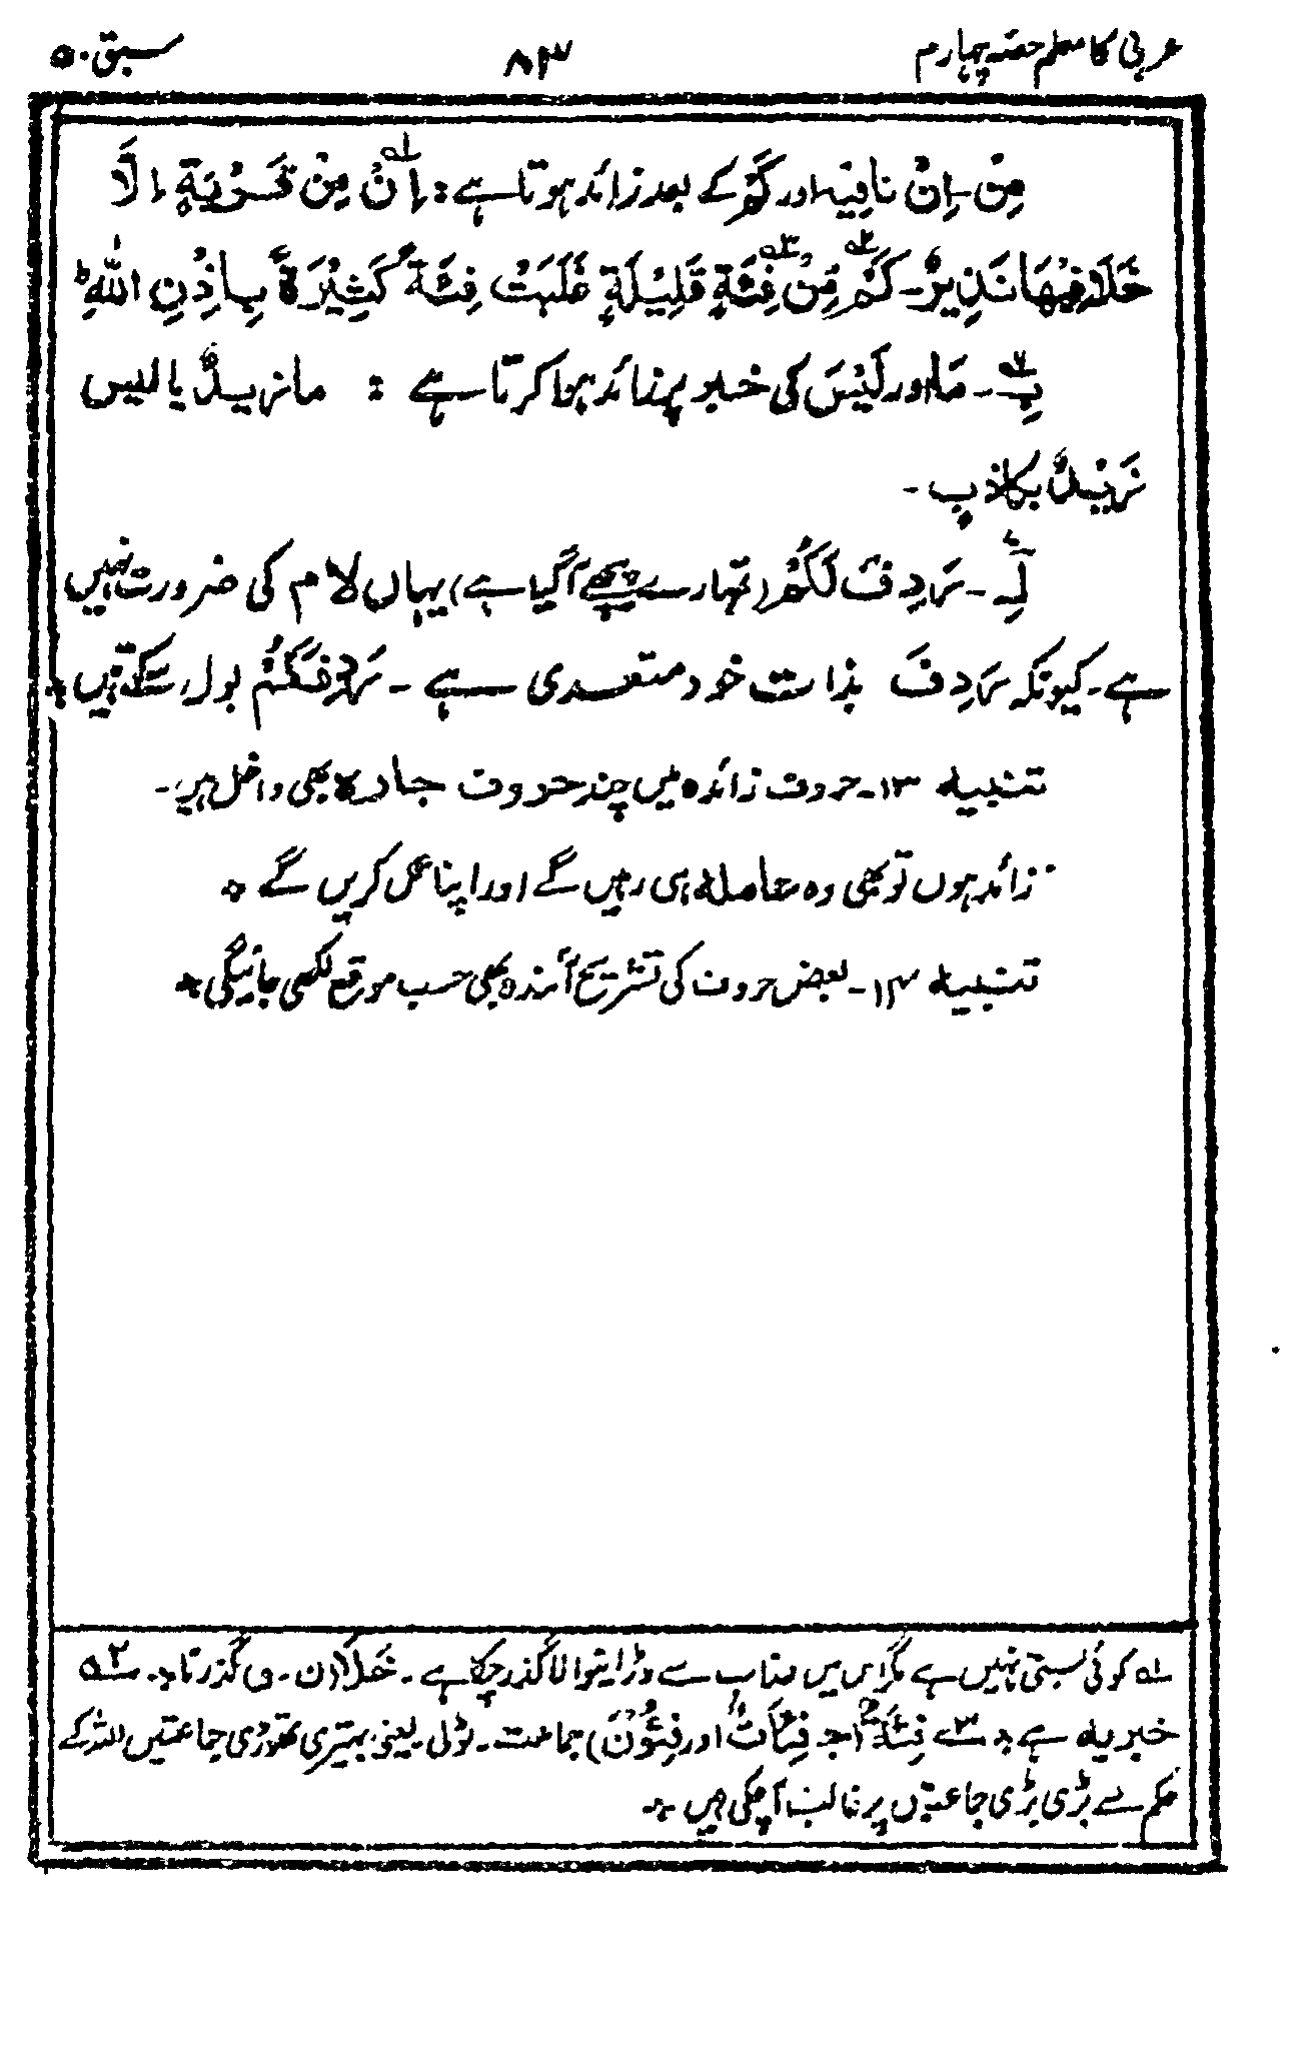 عربی کا معلم حصہ چہارم ۸۳ سبق ۵۰
مِنْ ۔ اِنْ نافیہ اور کَمْ کے بعد زائد ہوتا ہے : اِنْ لہ مِنْ قَرْیَةٍ اِلَّا
خَلَا فِیْهَا نَذِیْرٌ ۔ کَمْ ۲ہ مِّنْ فِئَةٍ ۳ہ قَلِیْلَةٍ غَلَبَتْ فِئَةً کَثِیْرَةً بِاِذْنِ اللهِ ط
بِ ۔ مَا اور لَیْسَ کی خبر پر زائد ہوا کرتا ہے : ما زیدٌ یا لیس
زَیْدٌ بکاذبٍ ۔
لِ ۔ رَدِفَ لَکُمْ (تمہارے پیچھے آگیا ہے) یہاں لام کی ضرورت نہیں
ہے ۔ کیونکہ رَدِفَ بذات خود متعدی ہے ۔ رَدِفَکُمْ بول سکتے ہیں *
تنبیہ ۱۳ ۔ حروف زائدہ میں چند حروف جارہ بھی داخل ہیں ۔
زائد ہوں تو بھی وہ عاملہ ہی رہیں گے اور اپنا عمل کریں گے *
تنبیہ ۱۴ ۔ بعض حروف کی تشریح آئندہ بھی حسب موقع لکھی جائیگی *
لہ کوئی بستی نہیں ہے مگر اس میں عذاب سے ڈرانیوالا گذر چکا ہے ۔ خَلَا (ن ۔ و) گذرنا * ۲ہ
خبریہ ہے * ۳ہ فِئَةٌ (جـ فِئَاتٌ اور فِئُوْنَ) جماعت ۔ ٹولی یعنی بہتیری تھوڑی جماعتیں اللہ کے
حکم سے بڑی بڑی جماعتوں پر غالب آچکی ہیں *